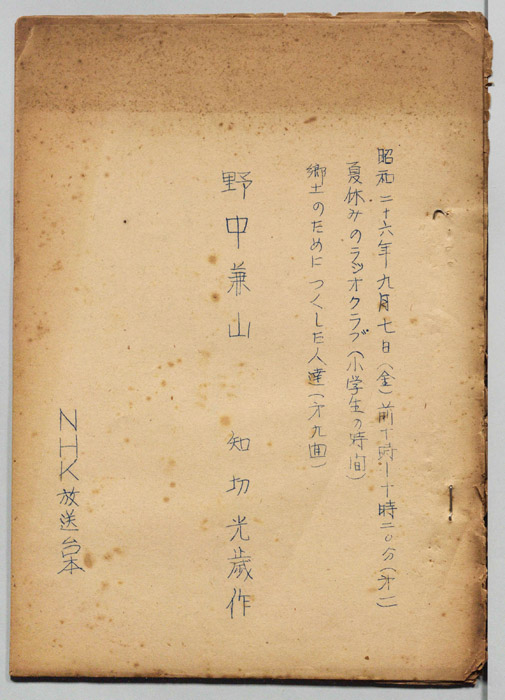 昭和二十六年九月七日(金)前十時ー十時二〇分(才二)
夏休みのラジオクラブ(小学生の時間)
郷土のためにつくした人達(才九回)
野中兼山 知切光歳作
NHK放送台本